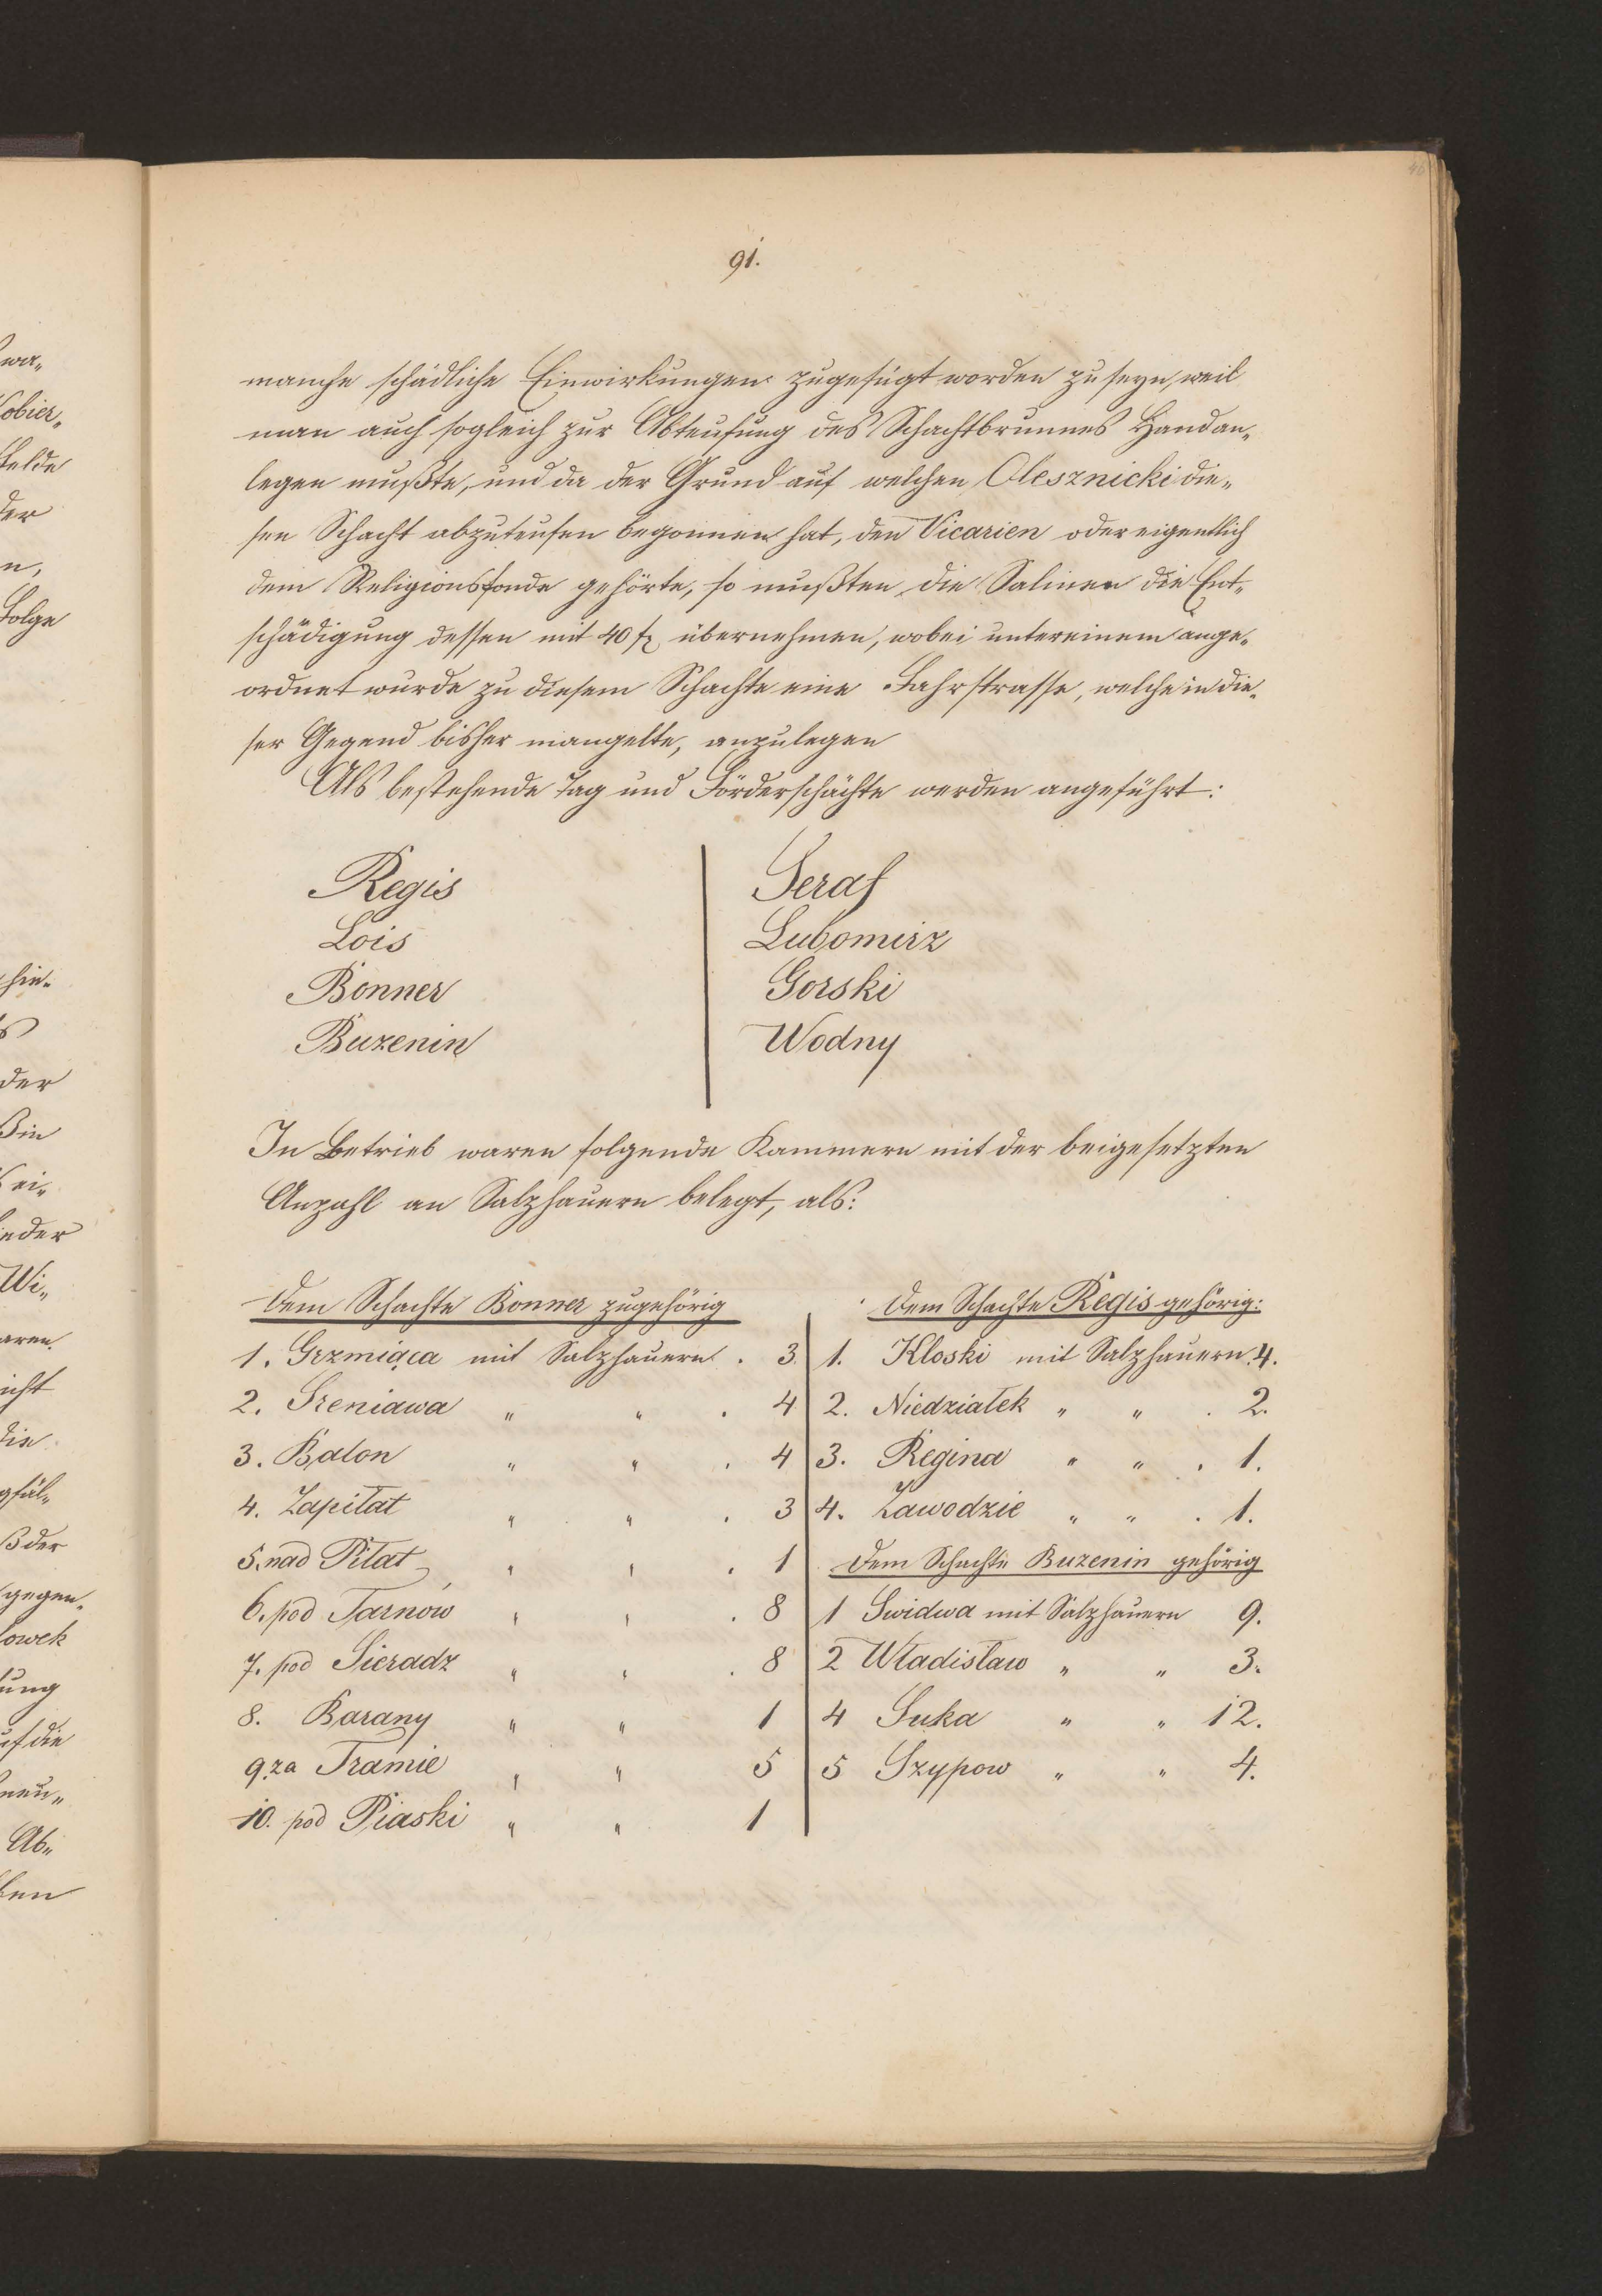 91.
manche schädliche Einwirkungen zugefügt worden zu seyn, weil
man auch sogleich zur Abteufung des Schachtbrunnes Hand an„
legen mußte, und da der Grund auf welchen Olesznicki die„
sen Schacht abzuteufen begonnen hat, den Vicarien oder eigentlich
dem Religionsfonde gehörte, so mußten die Salinen die Ent„
schädigung dessen mit 40 f. übernehmen, wobei untereinem ange„
ordnet wurde zu diesem Schachte eine Fahrstrasse, welche in die„
ser Gegend bisher mangelte, anzulegen
Als bestehende Tag und Förderschächte werden angeführt:
Regis
Lois
Bonner
Buzenin
Seraf
Lubomirz
Gorski
Wodny
In Betrieb waren folgende Kammern mit der beigesetzten
Anzahl an Salzhauern belegt, als:
Dem Schachte Bonner zugehörig
1. Grzmiąca mit Salzhauern . 3.
2. Sreniawa „ „ . 4
3. Balon „ „ . 4
4. Zapiłat „ „ . 3
5. nad Piłat „ „ . 1
6. pod Tarnów „ „ . 8
7. pod Sieradz „ „ . 8
8. Barany „ „ 1
9. za Tramie „ „ 5
10. pod Piaski „ „ 1
Dem Schachte Regis gehörig:
1. Kloski mit Salzhauern. 4.
2. Niedziałek „ „ . 2.
3. Regina „ „ . 1.
4. Zawodzie „ „ . 1.
Dem Schachte Buzenin gehörig
1 Swidwa mit Salzhauern 9.
2 Władisław „ „ 3.
4 Suka „ „ 12.
5 Szypow „ „ 4.